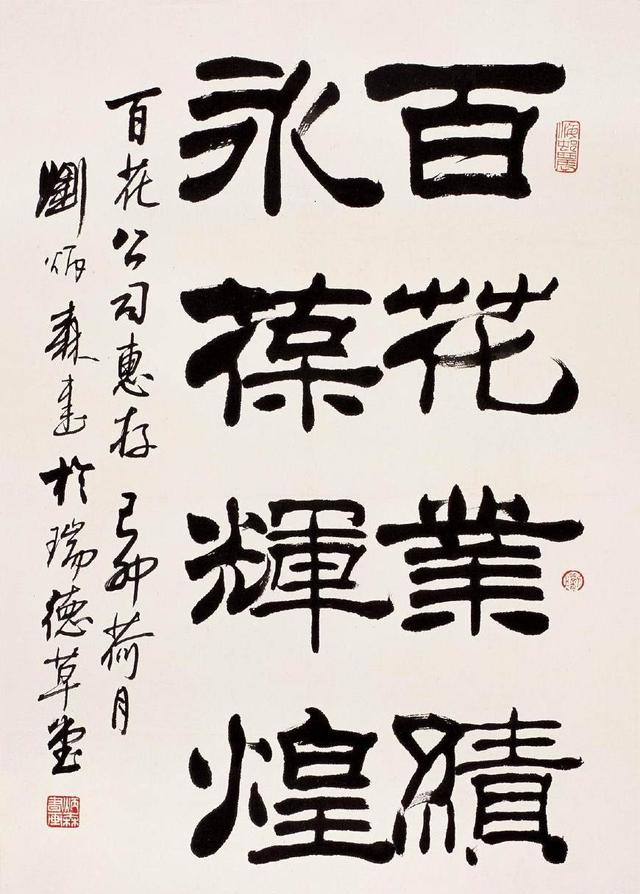 百花業績
永葆輝煌
百花公司惠存 己卯荷月
劉炳森書於瑞德草堂
炳森書畫